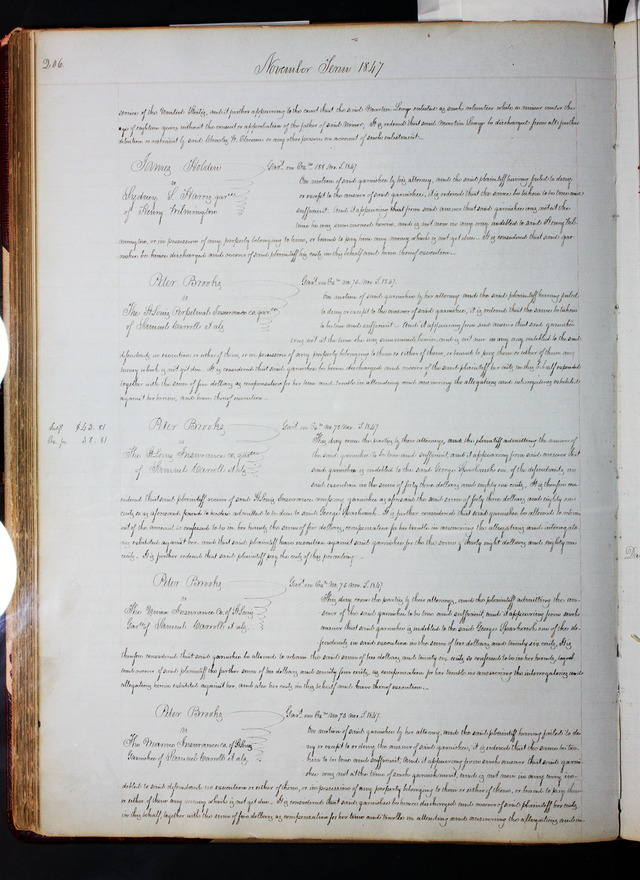 206.
November Term 1847
service of the United States, and it further appearing to the court that the said Martin Long enlisted as such volunteer while a minor under the
age of eighteen years without the consent or approbation of the father of said minor. It is ordered that said Martin Long be discharged from all further
detention or restraint by said Charles W. or any other person on account of such enlistment.
James Holden
vs
Sydney S. garnee
of Henry
Garnt. on Exon. 188. Nov. T. 1847.
On motion of said garnishee by his attorney, and the said plaintiff having failed to deny
or except to the answer of said garnishee, it is ordered that the same be taken to be true and
sufficient. And it appearing that from said answer that said garnishee was not at the
time he was summoned herein, and is not now in any way indebted to said Henry
or in possession of any property belonging to him, or bound to pay him any money which is not yet due. It is considered that said gar-
nishee be hence discharged and recover of said plaintiff his costs in this behalf and have thereof execution.
Peter Brooks
vs
The St. Louis Perpetual Insurance co. garnee
of Samuel Carroll et als
Garnt. on Exon. No. 73. Nov. T. 1847.
On motion of said garnishee by her attorney and the said plaintiff having failed
to deny or except to the answer of said garnishee, it is ordered that the same be taken
to be true and sufficient. And it appearing from said answer that said garnishee
was not at the time she was summoned herein, and is not now in any way indebted to the said
defendants in execution or either of them, or in possession of any property belonging to them or either of them, or bound to pay them or either of them any
money which is not yet due. It is considered that said garnishee be hence discharged and recover of the said plaintiff her costs in this behalf expended
together with the sum of five dollars as compensation for her time and trouble in attending and answering the allegations and interrogatories exhibited
against her herein, and have thereof execution.
$43. 81
38. 81
Peter Brooks
vs
The St. Louis Insurance co. garnee
of Samuel Carroll et als
Garnt. on Exon. No. 73 Nov. T. 1847
This day come the parties by their attorneys, and the plaintiff admitting the answer of
the said garnishee to be true and sufficient, and it appearing from said answer that
said garnishee is indebted to the said George one of the defendants in
said execution in the sum of forty three dollars and eighty one cents. It is therefore con-
sidered that said plaintiff recover of said St. Louis Insurance company garnishee as aforesaid the said sum of forty three dollars and eighty one
cents so as aforesaid admitted to be due to said George It is further considered that said garnishee be allowed to retain
out of the amount so confessed to be in her hands, the sum of five dollars, compensation for her trouble in answering the allegations and interrogato-
ries exhibited against her, and that said plaintiff have execution against said garnishee for the sum of thirty eight dollars and eighty one
cents. It is further ordered that said plaintiff pay the costs of this proceeding.
Peter Brooks
vs
The Union Insurance Co. of St. Louis
Garnee of Samuel Carroll et als.
Garnt. on Exon. No. 73 Nov. T. 1847.
This day come the parties by their attorneys, and the plaintiff admitting the an-
swer of the said garnishee to be true and sufficient, and it appearing from such
answer that said garnishee is indebted to the said George one of the de-
fendants in said execution in the sum of two dollars and twenty six cents. It is
therefore considered that said garnishee be allowed to retain the said sum of two dollars and twenty six cents so confessed to be in her hands,
and recover of said plaintiff the further sum of two dollars and seventy four cents, as compensation for her trouble in answering the interrogatories and
allegations herein exhibited against her, and also her costs in this behalf and have thereof execution.
Peter Brooks
vs
The Marine Insurance co. of St. Louis
Garnishee of Samuel Carroll et als.
Garnt. on Exon. No. 73 Nov. T. 1847.
On motion of said garnishee by her attorney, and the said plaintiff having failed to de-
ny or except to the answer of said garnishee, it is ordered that the same be ta-
ken to be true and sufficient, and it appearing from such answer that said garni-
shee was not at the time of said garnishment, and is not now in any way in-
debted to said defendants in execution or either of them, or in possession of any property belonging to them or either of them, or bound to pay them
or either of them any money which is not yet due. It is considered that said garnishee be hence discharged and recover of said plaintiff her costs
in this behalf, together with the sum of five dollars as compensation for her time and trouble in attending and answering the allegations and in-